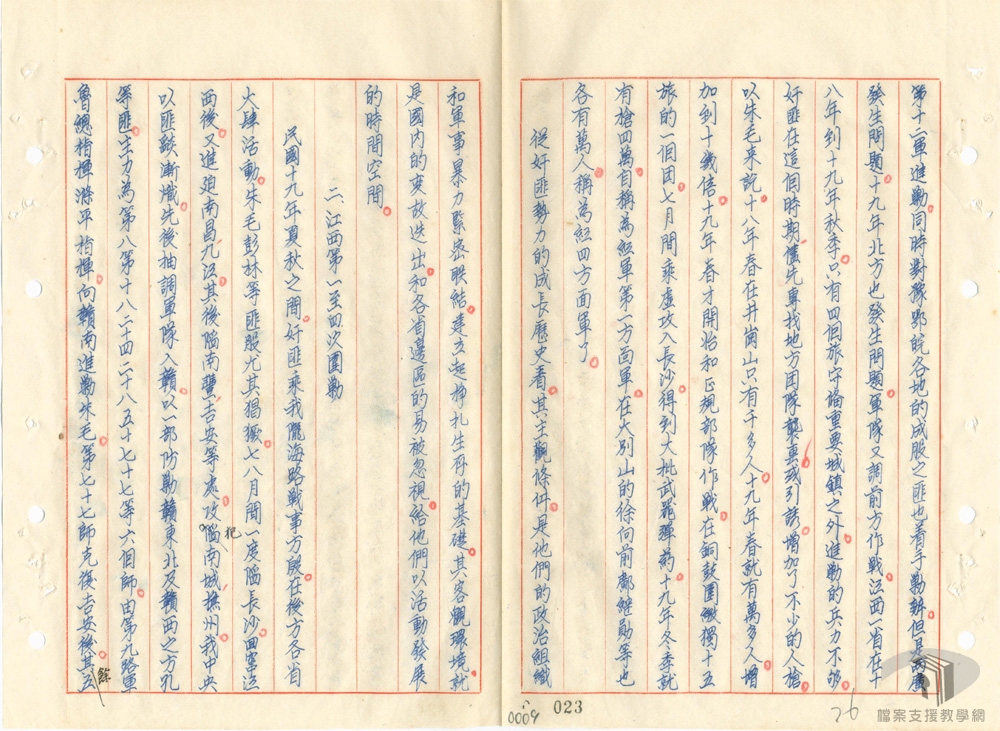 第十二軍進勦。同時對豫鄂皖各地的成股之匪也着手勦辦。但是兩廣
發生問題。十九年北方也發生問題。軍隊又調前方作戰。江西一省在十
八年到十九年秋季。只有四個旅守據重要城鎮之外。進勦的兵力不够。
奸匪在這個時期儘先專找地方團隊襲擊或引誘。增加了不少的人槍。
以朱毛來說。十八年春在井崗山只有千多人。十九年春就有萬多人。增
加到十幾倍。十九年春才開始和正規部隊作戰。在銅鼓圍繳獨十五
旅的一個團。七月間乘虛攻入長沙。得到大批武器彈葯。十九年冬季就
有槍四萬。自稱為紅軍第一方面軍。在大別山的徐向前鄺繼勛等也
各有萬人。稱為紅四方面軍了。
從奸匪勢力的成長歷史看。其主觀條件。是他們的政治組織
和軍事暴力緊密聯結。建立起掙扎生存的基礎。其客觀環境。就
是國內的变故迭出。和各省邊區的易被忽視。給他們以活動發展
的時間空間。
二、江西第一至四次圍勦
民國十九年夏秋之間。奸匪乘我隴海路戰事方殷。在後方各省
大肆活動。朱毛彭林等匪股尤其猖獗。七八月間一度陷長沙。回竄江
西後。又進迫南昌九江。其後陷南豐吉安等處。攻犯南城撫州。我中央
以匪燄漸熾。先後抽調軍隊入贛。以一部防勦贛東北及贛西之方孔
等匪。主力為第八第十八二十四二十八五十七七十七等六個師。由第九路軍
魯總指揮滌平指揮。向贛南進勦朱毛。第七十七師克復吉安後。其餘五
0009
023
26
檔案支援教學網